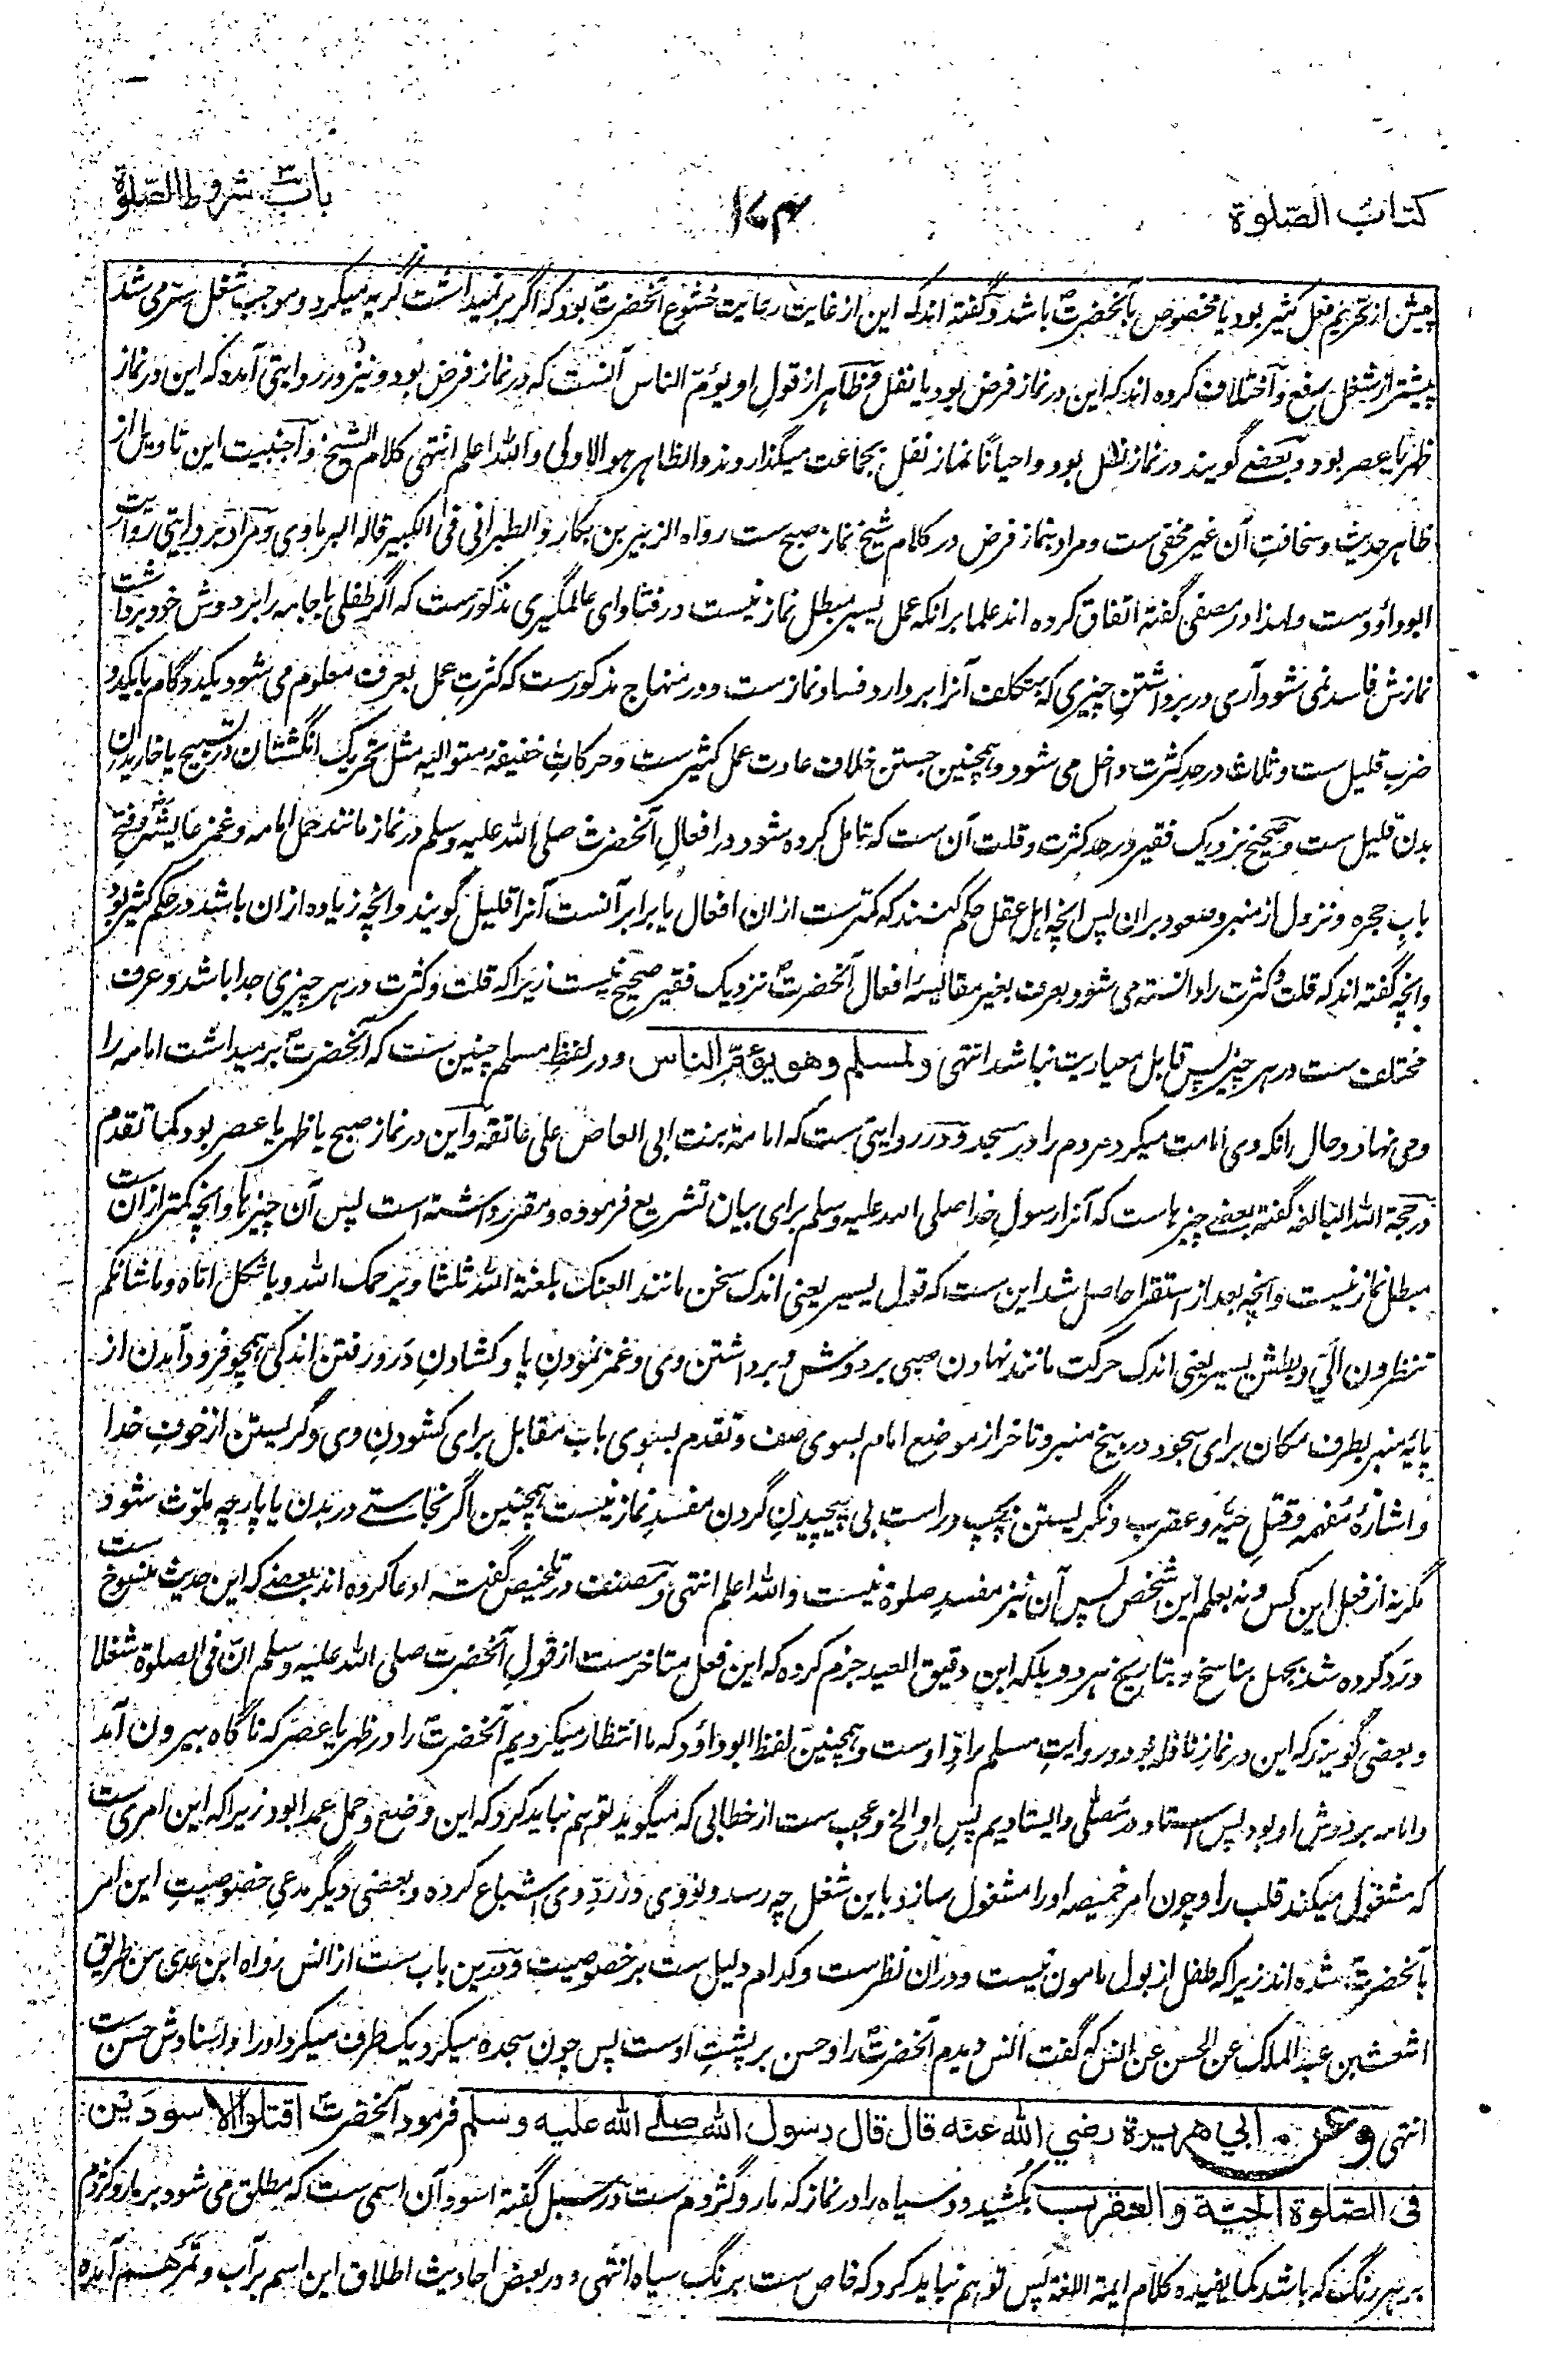 کتاب الصّلوة
۱۷۴
باب۳ شروط الصّلوة
پیش از تحریم فعل کثیر بود یا مخصوص بآنحضرتؐ باشد و گفته اند که این از غایت رعایت خشوع آنحضرتؐ بود که اگر بر نمیداشت گریه میکرد و موجب شغل بیشتر می شد
بیشتر از شغل رفع و اختلاف کرده اند که این در نماز فرض بود یا نفل و ظاهر از قول او یؤمّ الناس آنست که در نماز فرض بود و نیز در روایتی آمده که این در نماز
ظهر یا عصر بود و بعضے گویند در نماز نفل بود و احیانًا نماز نفل بجماعت میگذاروند و الظاهر هو الاولی والله اعلم انتهی کلام الشیخ و اجنبیت این تاویل از
ظاهر حدیث و سخافتِ آن غیر مخفی ست و مراد بنماز فرض در کلام شیخ نماز صبح ست رواه الزبیر بن بکار و الطبرانی فی الکبیر قاله البرماوی و مراد بروایتی روایت
ابوداؤد ست و لهذا در مصفی گفته اتفاق کرده اند علما بر انکه عمل یسیر مبطل نماز نیست در فتاوای عالمگیری مذکورست که اگر طفلی یا جامه را بر دوش خود برداشت
نمازش فاسد نمی شود آری در برداشتنِ چیزی که بتکلف آنرا بردارد فساد نمازست و در منهاج مذکورست که کثرتِ عمل بعرف معلوم می شود یکدو گام یا یکدو
ضرب قلیل ست و ثلاث در حدِ کثرت داخل می شود و همچنین جستن خلاف عادت عمل کثیرست و حرکاتِ خفیفه متوالیه مثل تحریک انگشتان در تسبیح یا خاریدن
بدن قلیل ست و صحیح نزدیک فقیر در حد کثرت و قلت آن ست که تامل کرده شود در افعالِ آنحضرت صلی الله علیه وسلم در نماز مانند حمل امامه و غمز عایشه و فتح
بابِ حجره و نزول از منبر و صعود بران پس انچه اهل عقل حکم کنند که کمترست از ان افعال یا برابر آنست آنرا قلیل گویند و انچه زیاده ازان باشد در حکم کثیر بود
و انچه گفته اند که قلت و کثرت را دانسته می شود بعرف بغیر مقایسۀ افعال آنحضرتؐ نزدیک فقیر صحیح نیست زیرا که قلت و کثرت در هر چیزی جدا باشد و عرف
مختلف ست در هر چیز پس قابل معیاریت نباشد انتهی ولمسلم وهو یؤمّ الناس و در لفظِ مسلم چنین ست که آنحضرتؐ بر میداشت امامه را
و می نهاد و حال انکه وی امامت میکرد مردم را در مسجد و در روایتی ست که امامة بنت ابی العاص علی عاتقه و این در نماز صبح یا ظهر یا عصر بود کما تقدم
در حجة الله البالغه گفته بعضے چیزهاست که آنرا رسولِ خدا صلی الله علیه وسلم برای بیان تشریع فرموده و مقرر داشته است پس آن چیزها و انچه کمتر ازان ست
مبطل نماز نیست و انچه بعد از استقرا حاصل شد این ست که قول یسیر یعنی اندک سخن مانند العنک بلعنة الله ثلثا و یرحمک الله و یا ثکل اماه و ما شانکم
تنظرون الیّ و بطش یسیر یعنی اندک حرکت مانند نهادن صبی بر دوش و برداشتن وی و غمز نمودنِ پا و کشادنِ در و رفتن اندکی همچو فرود آمدن از
پایۀ منبر بطرف مکان برای سجود در بیخ منبر و تاخر از موضع امام بسوی صف و تقدم بسوی باب مقابل برای کشودنِ وی و گریستن از خوفِ خدا
و اشارۀ مفهمه و قتلِ حیّه و عقرب و نگریستن بچپ و راست بی پیچیدنِ گردن مفسدِ نماز نیست همچنین اگر نجاستے در بدن یا پارچه ملوّث شود
مگر نه از فعل این کس و نه بعلم این شخص پس آن نیز مفسدِ صلوة نیست والله اعلم انتهی و مصنف در تلخیص گفته ادعا کرده اند بعضے که این حدیث منسوخ ست
و رد کرده شد بجهل بناسخ و بتاریخ هر دو بلکه ابن دقیق العید جزم کرده که این فعل متاخرست از قولِ آنحضرت صلی الله علیه وسلم انّ فی الصلوة شغلا
و بعضی گویند که این در نماز نافله بود و روایتِ مسلم رادِّ اوست و همچنین لفظ ابوداؤد که ما انتظار میکردیم آنحضرتؐ را در ظهر یا عصر که ناگاه بیرون آمد
و امامه بر دوش او بود پس استاد در مصلی و ایستادیم پسِ او الخ و عجب ست از خطابی که میگوید توهم نباید کرد که این وضع و حمل عمدا بود زیرا که این امری ست
که مشغول میکند قلب را و چون امر خمیصه او را مشغول سازد باین شغل چه رسد و نووی در ردِّ وی اشباع کرده و بعضی دیگر مدعیِ خصوصیتِ این امر
بآنحضرتؐ شده اند زیرا که طفل از بول مامون نیست و دران نظرست و کدام دلیل ست بر خصوصیت و درین باب ست از انس رواه ابن عدی من طریق
اشعث بن عبد الملک عن الحسن عن انس که گفت انس دیدم آنحضرتؐ را و حسن بر پشتِ اوست پس چون سجده میکرد یک طرف میکرد او را و اسنادش حسن ست
انتهی وعن ابي هريرة رضي الله عنه قال قال رسول الله صلے الله علیه وسلم فرمود آنحضرتؐ اقتلوا الاسودين
فی الصّلوة الحیّة والعقرب بکشید دو سیاه را در نماز که مار و گژدم ست در سبل گفته اسود آن اسمی ست که مطلق می شود بر مار و کژدم
بر هر رنگ که باشد کما یفیده کلام ایمة اللغة پس توهم نباید کرد که خاص ست برنگ سیاه انتهی و در بعض احادیث اطلاق این اسم بر آب و تمر هم آمده